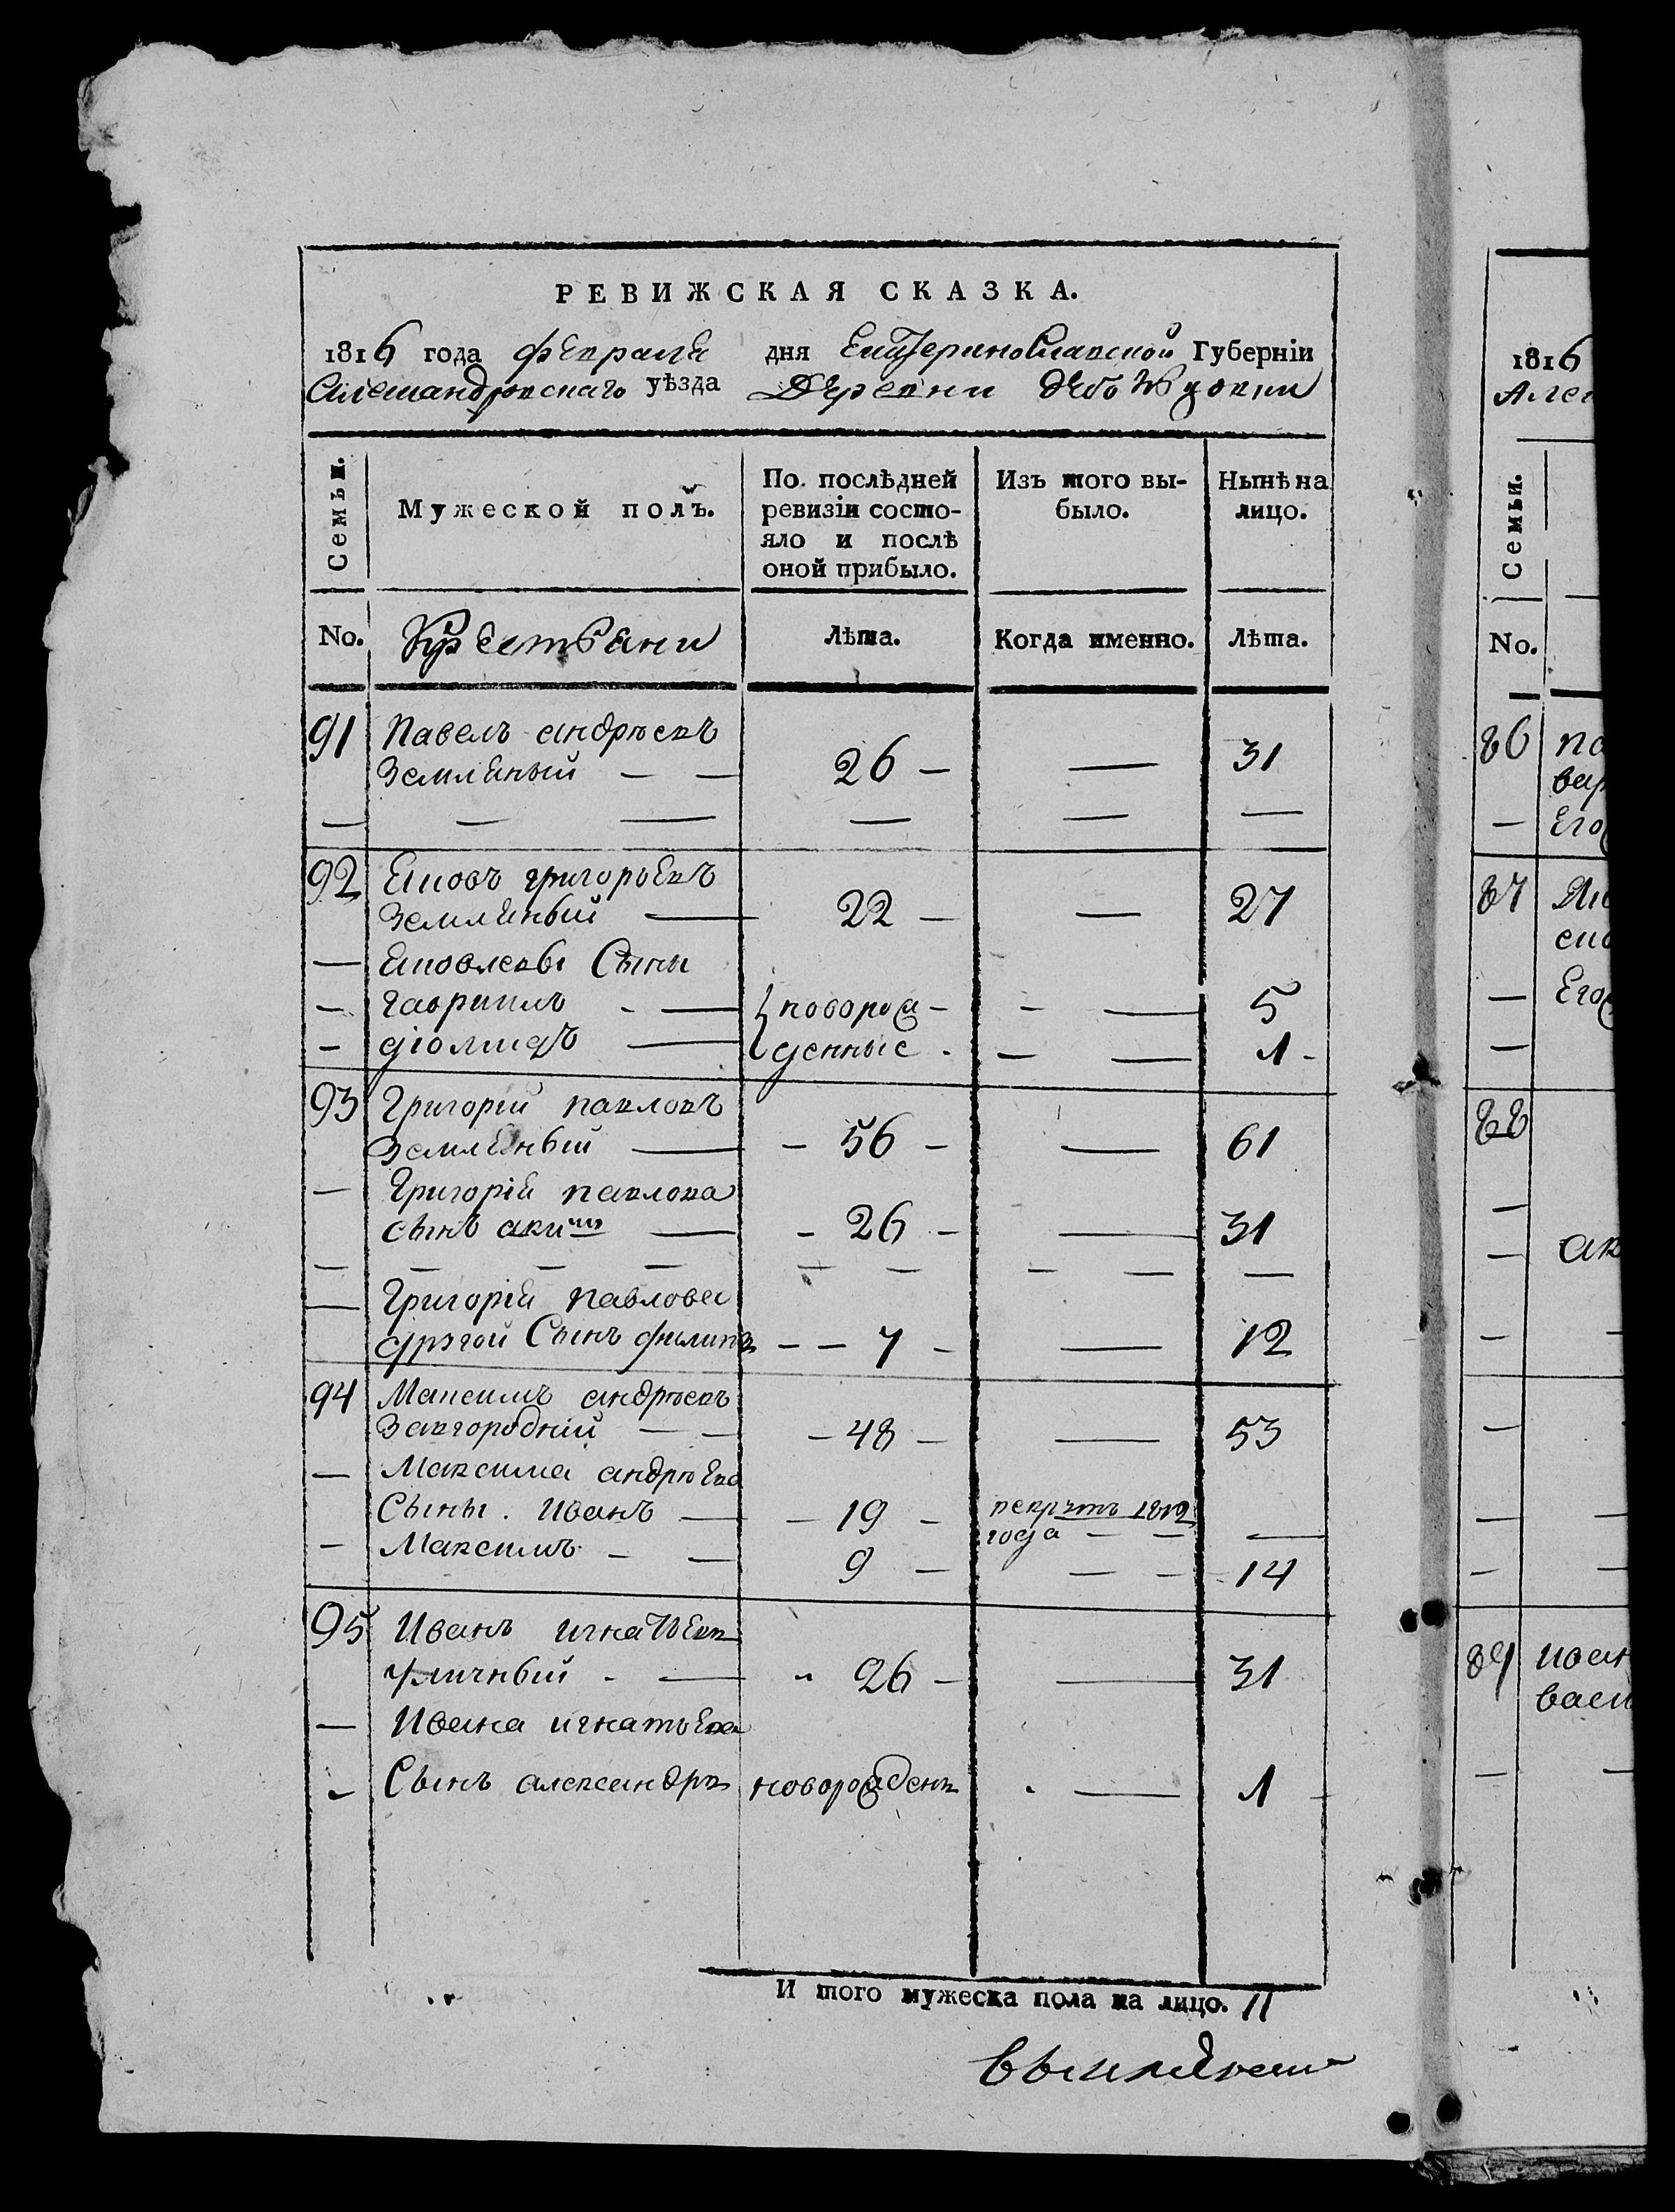 РЕВИЖСКАЯ СКАЗКА.
1816 года февраля дня Екатеринославской Губерніи
Александровскаго уѣзда Деревни
Семьи.
Мужеской полъ.
По послѣдней ревизіи состо-
яло и послѣ
оной прибыло.
Изъ того вы-
было.
Нынѣ на
лицо.
No.
Крестьяни
Лѣта.
Когда именно.
Лѣта.
91 Павелъ андрѣевъ
Земляный — — 26 — — 31
92 Яковъ григорьевъ
Земляный — 22 — — 27
— Яковлевы Сыны
— гавриилъ - — новорож- - — 5
— диомидъ — денные - — — 1 -
93 Григорій павловъ
Земляный — - 56 - — 61
— Григорія павлова
сынъ акимъ — - 26 - — 31
— Григорія павлова
другой Сынъ филипъ - - 7 - — 12
94 Максимъ андрѣевъ
Завгородній — — - 48 - — 53
— Максима андрѣева
Сыны . иванъ — - 19 - рекрутъ 1812
года — — —
— Максимъ - — 9 — — - 14
95 Иванъ игнатьевъ
уличный - — 26 — — 31
— Ивана игнатьева
- Сынъ александръ новорожденъ - — 1
И того мужеска пола на лицо. 11
1816
Алек
Семьи.
No.
86 па
вар
— Его
87
— Его
88
ак
89 иван
васи